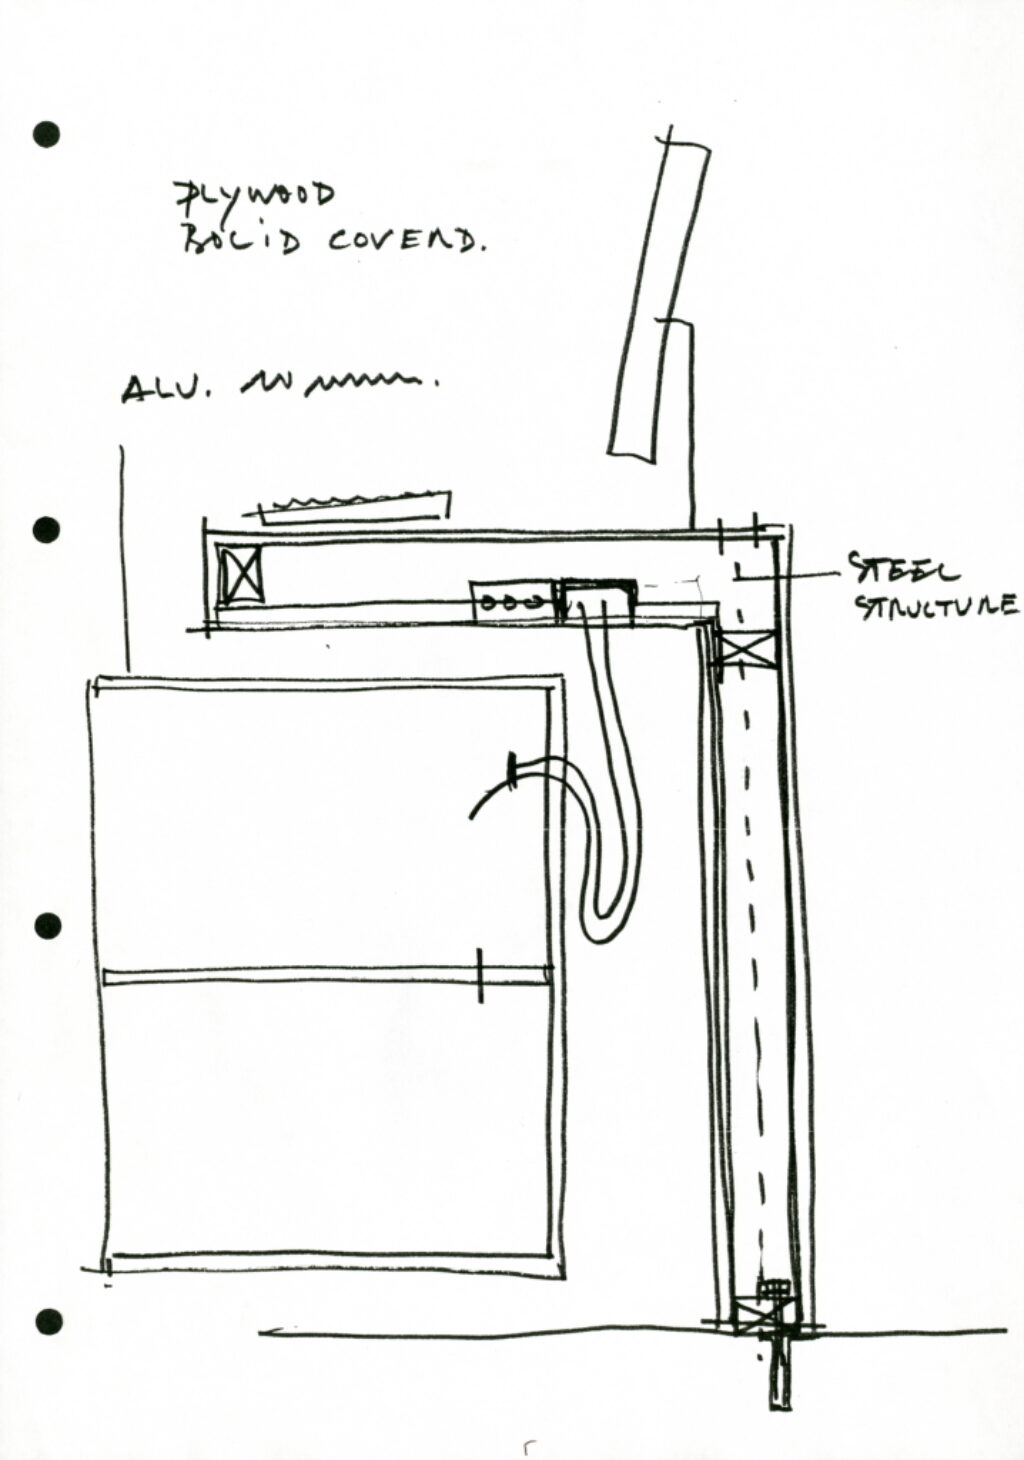 PLYWOOD
BOLID COVERD.
ALU.
STEEL
STRUCTURE